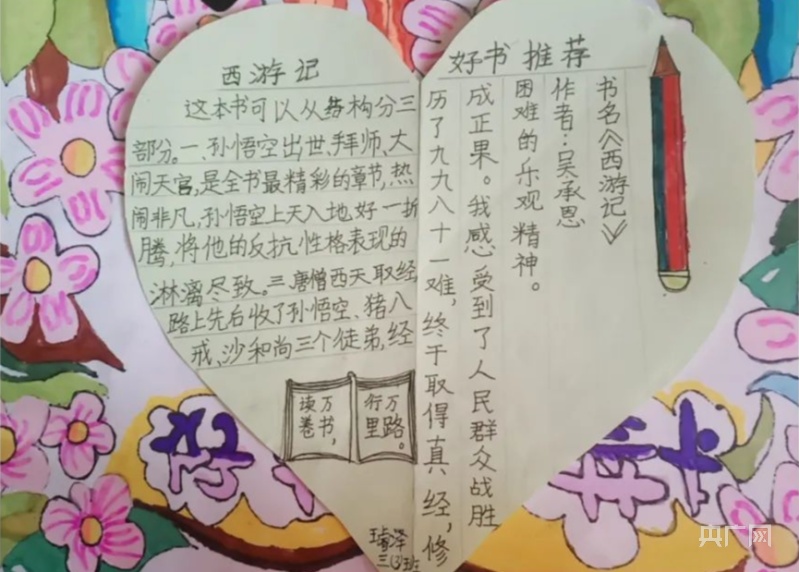 好书推荐
书名《西游记》
作者:吴承思
西游记
这本书可以从结构分三
部分。一、孙悟空出世、拜师、大
闹天宫,是全书最精彩的章节,热
闹非凡,孙悟空上天入地,好一折
腾,将他的反抗性格表现的
淋漓尽致。三、唐僧西天取经
路上先后收了孙悟空、猪八
戒、沙和尚三个徒弟,经
历了九九八十一难,终于取得真经,修
成正果。我感受到了人民群众战胜
困难的乐观精神。
读万
卷书,
行万
里路。
三(3)班
央广网